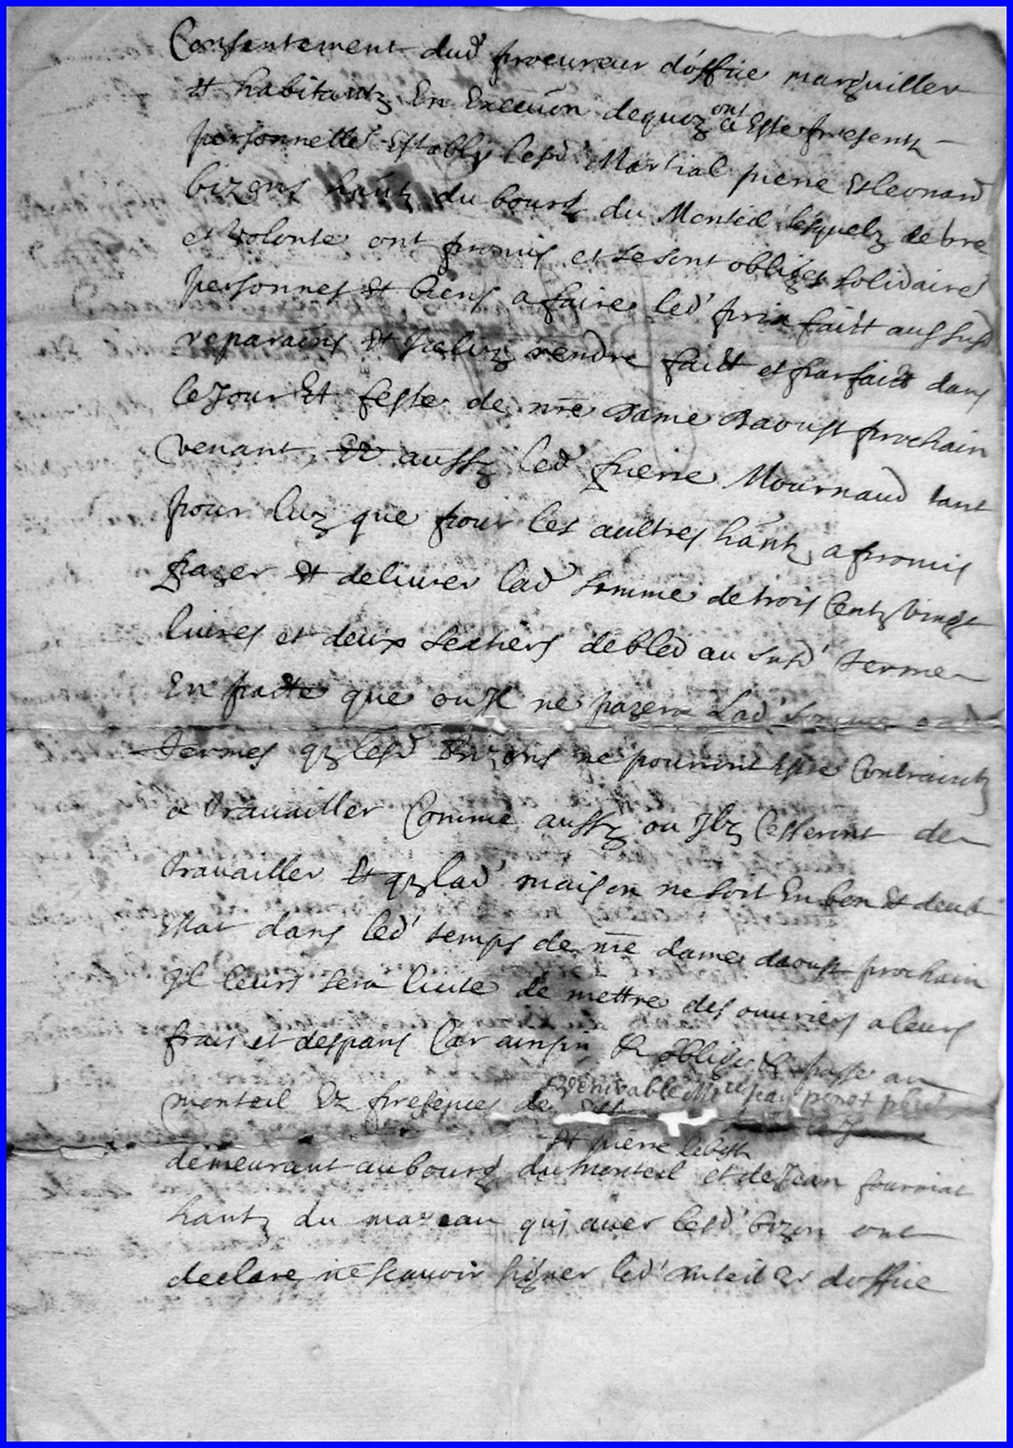 Consentement dud procureur d'office marguiller
et habitantz En Execuon dequoy ont a Este presentz
personnellet Establis lesd Martial pierre Et leonard
bizens hantz du bourg du Monteil lesquelz de bre
et volonte ont promis et se sont obliges solidaire
personnes Et biens a faire led' prix faict aussusd
reparaons Et Icelluy rendre faict et parfaict dans
le Jour Et feste de nre dame Daoust prochain
venant, Et aussy led pierre Mournaud tant
pour luy que pour les aultres hantz a promis
payer Et deliurer lad somme de trois Centz vingt
liures et deux sextiers de bled au susd' terme
En pacte que ou Il ne payera Lad somme aud
termes qz lesd Bizens ne pourront estre Contrainctz
a Trauailler Comme aussy ou Ilz Cesseront de
trauailler Et qz lad' maison ne soit En bon Et deub
Estat dans led' temps de nre dame daoust prochain
Il leurs sera licite de mettre des ouuriers a leurs
frais et despans Car ainsin Et obliges Et passe au
venerable Mre Jean
monteil Ez presences de
Et pierre
demeurant au bourg du Monteil et de Jean fourniat
hantz du mazeau qui auec lesd' bizen ont
declare ne scauoir signer led' d'office